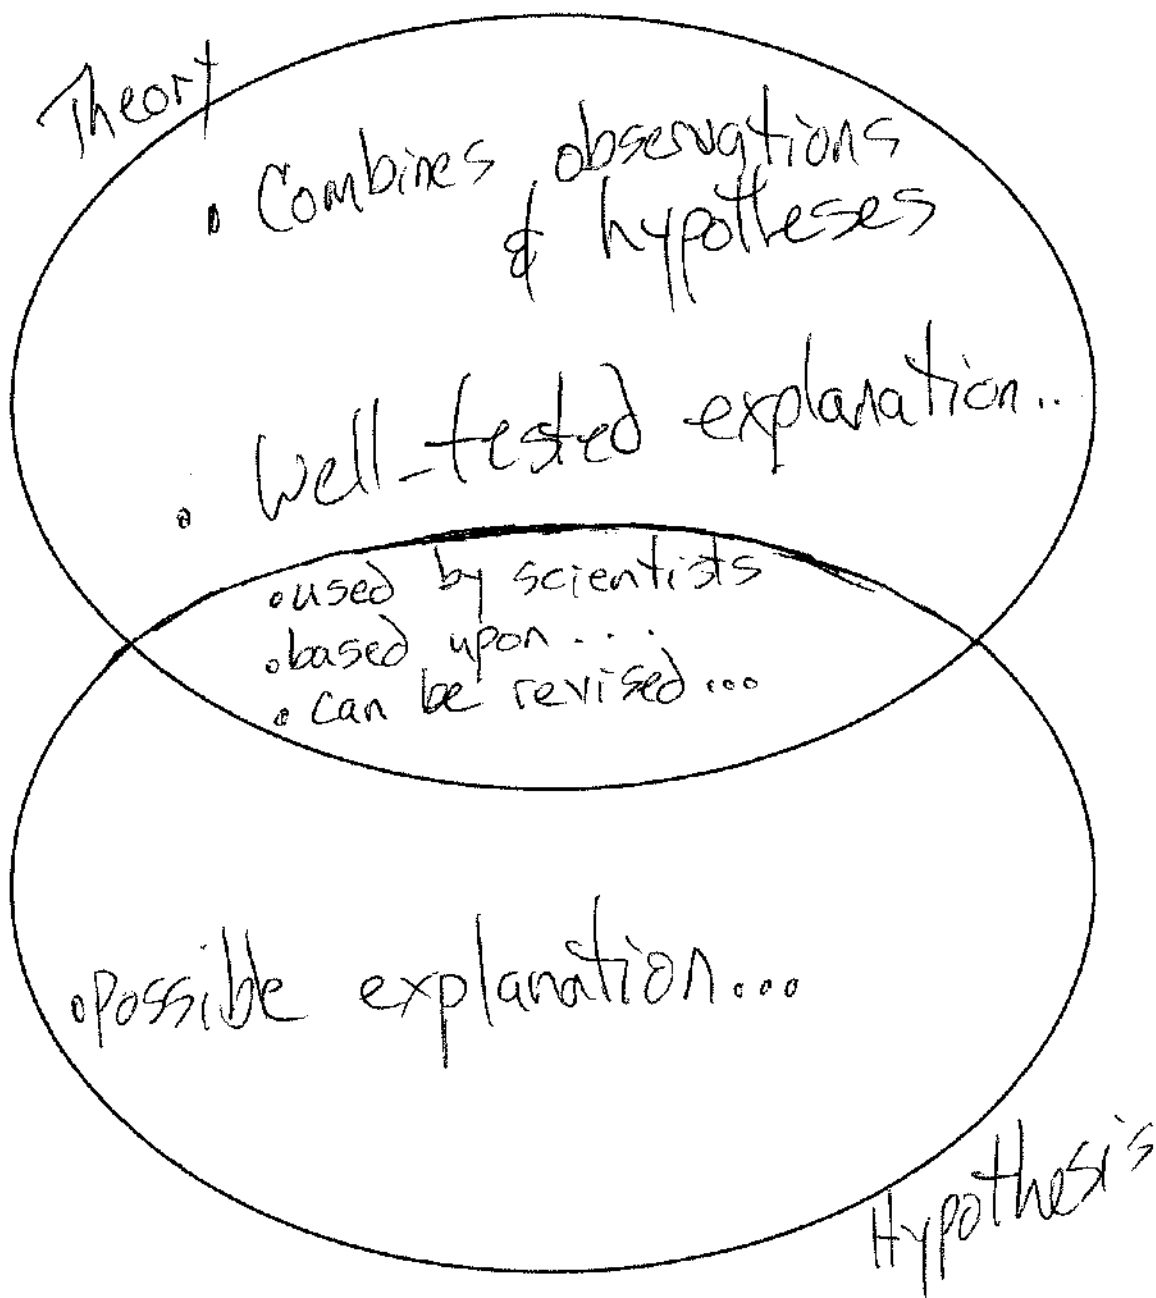 Theory
• Combines observations
& hypotheses
• Well-tested explanation..
• used by scientists
• based upon....
• can be revised...
• Possible explanation...
Hypothesis